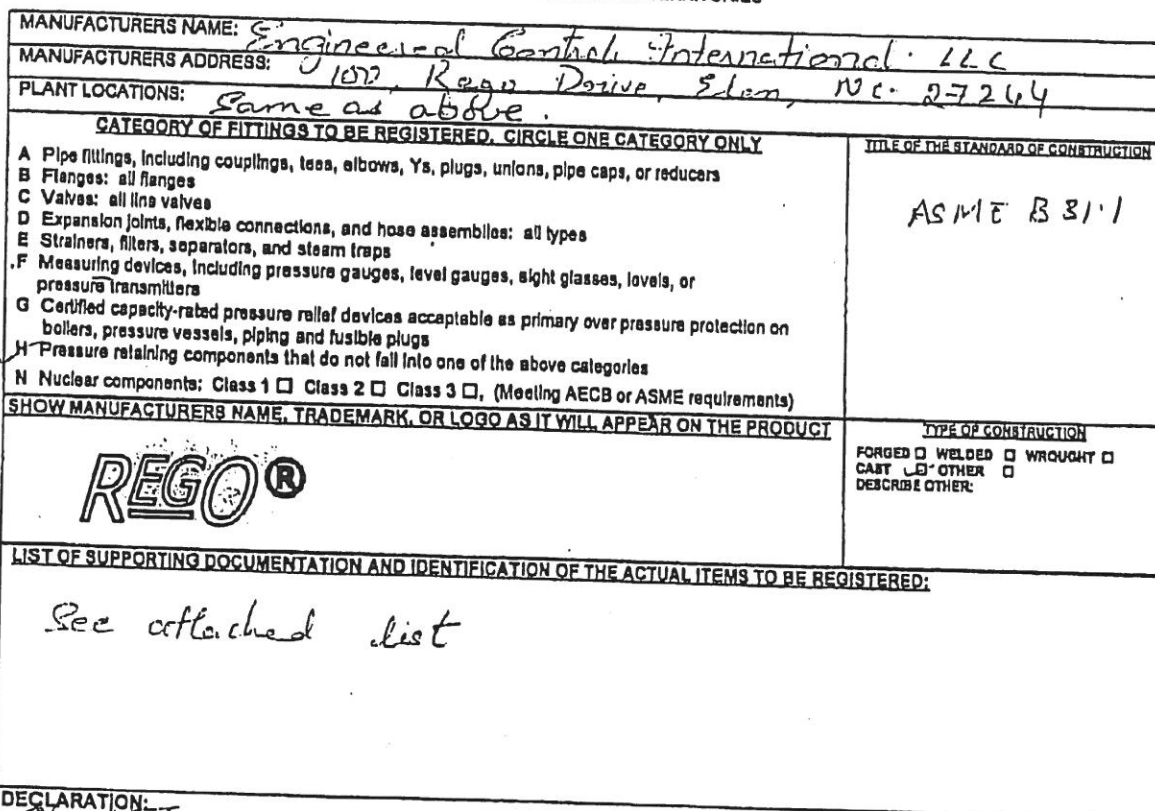 MANUFACTURERS NAME: Engineered Controls International. LLC
MANUFACTURERS ADDRESS: 100, Rego Drive, Elon, NC. 27244
PLANT LOCATIONS: Same as above.
CATEGORY OF FITTINGS TO BE REGISTERED. CIRCLE ONE CATEGORY ONLY
A Pipe fittings, including couplings, tees, elbows, Ys, plugs, unions, pipe caps, or reducers
B Flanges: all flanges
C Valves: all line valves
D Expansion joints, flexible connections, and hose assemblies: all types
E Strainers, filters, separators, and steam traps
F Measuring devices, including pressure gauges, level gauges, sight glasses, levels, or
pressure transmitters
G Certified capacity-rated pressure relief devices acceptable as primary over pressure protection on
boilers, pressure vessels, piping and fusible plugs
H Pressure retaining components that do not fall into one of the above categories
N Nuclear components: Class 1 ☐ Class 2 ☐ Class 3 ☐, (Meeting AECB or ASME requirements)
TITLE OF THE STANDARD OF CONSTRUCTION
ASME B 31.1
SHOW MANUFACTURERS NAME, TRADEMARK, OR LOGO AS IT WILL APPEAR ON THE PRODUCT
REGO®
TYPE OF CONSTRUCTION
FORGED ☐ WELDED ☐ WROUGHT ☐
CAST ☑ OTHER ☐
DESCRIBE OTHER:
LIST OF SUPPORTING DOCUMENTATION AND IDENTIFICATION OF THE ACTUAL ITEMS TO BE REGISTERED:
See attached list
DECLARATION: